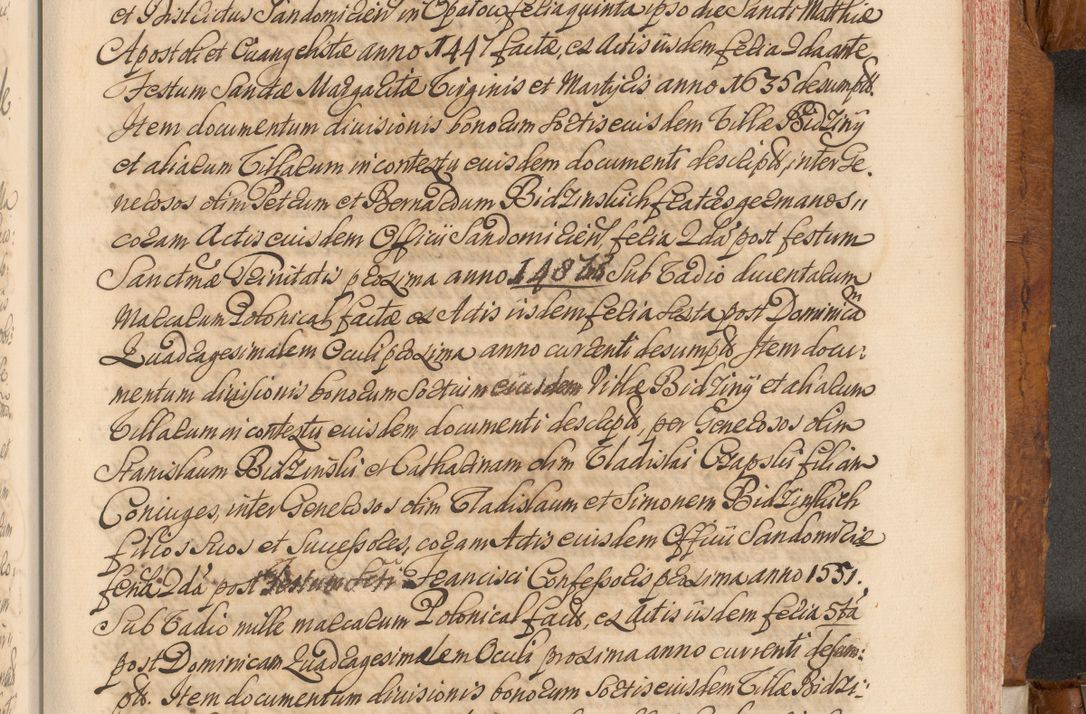 et Districtus Sandomirien̄ in Opatou feria quinta ipso die Sancti Matthiæ
Apostoli et Euangelistæ anno 1447 factæ, ex Actis iisdem feria 2da ante
Festum Sanctæ Margaritæ Virginis et Martyris anno 1635 desumpt.
Item documentum diuisionis bonorum sortis eiusdem Villæ Bidziny
et aliarum Villarum in contextu eiusdem documenti descript, inter Ge-
nerosos olim Petrum et Bernardum Bidzinskich fratres germanos
coram Actis eiusdem Officii Sandomirien̄, feria 2da post festum
Sanctmæ Trinitatis proxima anno Sub Vadio ducentarum
Marcarum Polonical factæ ex Actis iisdem feria sexta post Dominicam
Quadragesimalem Oculi proxima anno currenti desumpt, Item docu-
mentum diuisionis bonorum sortium eiusdem Villæ Bidziny et aliarum
Villarum in contextu eiusdem documenti descript, per Generosos olim
Stanislaum Bidzinski et Catharinam olim Vladislai Czapski filiam
Coniuges, inter Generosos olim Vladislaum et Simonem Bidzinskich
filios suos et Successores, coram Actis eiusdem Officii Sandomirien̄
feria 2da post Festum Scti Francisci Confessoris proxima anno 1551.
Sub Vadio mille marcarum Polonical fact, ex Actis iisdem feria 5tâ
post Dominicam Quadragesimalem Oculi proxima anno currenti desum-
pt. Item documentum diuisionis bonorum Sortis eiusdem Villæ Bidzi-